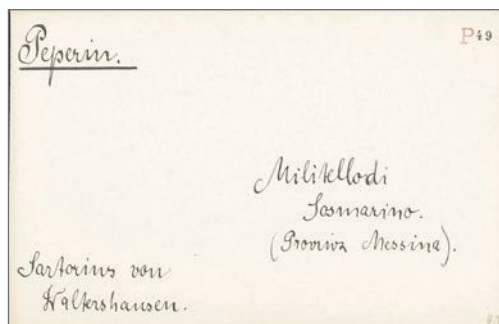 Peperin.
P49
Militellodi
Sosmarino.
(Provinz Messina).
Sartorius von
Waltershausen.